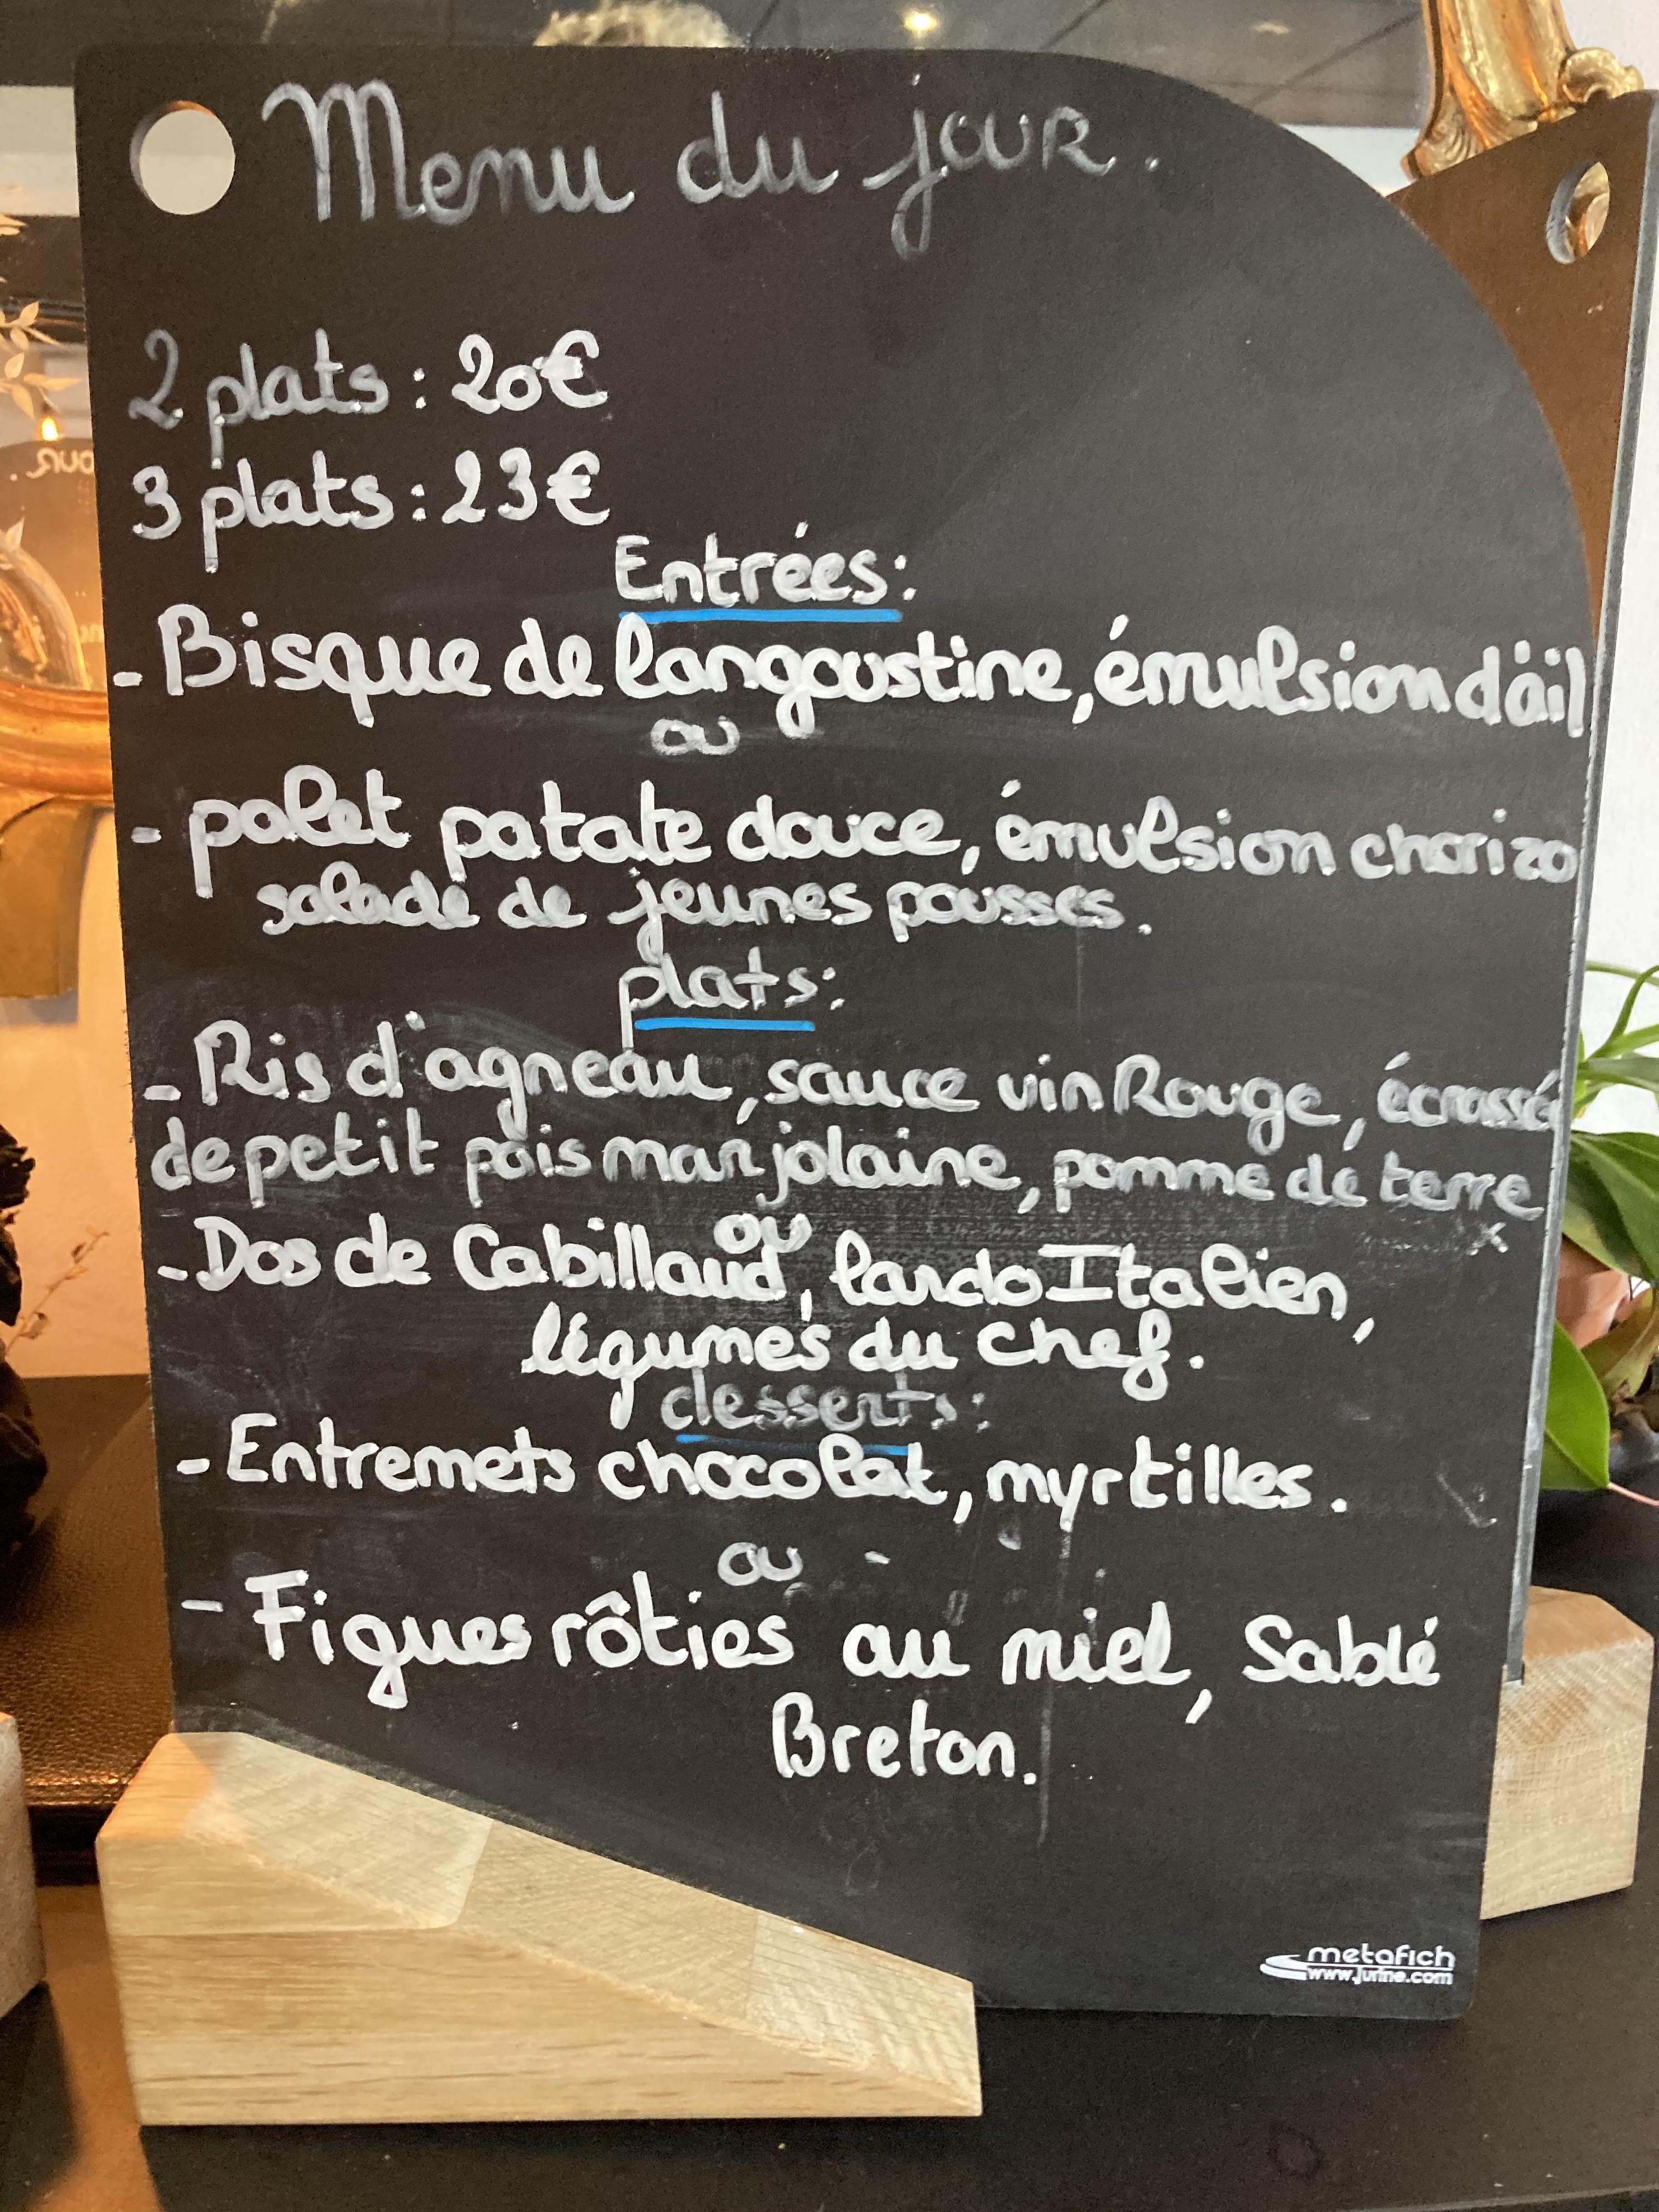 Menu du jour.
2 plats : 20€
3 plats : 23€
Entrées :
- Bisque de langoustine, émulsion d'ail
ou
- palet patate douce, émulsion chorizo
salade de jeunes pousses.
plats :
- Ris d'agneau, sauce vin Rouge, écrassé
de petit pois marjolaine, pomme de terre
ou
- Dos de Cabillaud, lardo Italien,
légumes du chef.
desserts :
- Entremets chocolat, myrtilles.
ou
- Figues rôties au miel, Sablé
Breton.
metafich
www.jurine.com